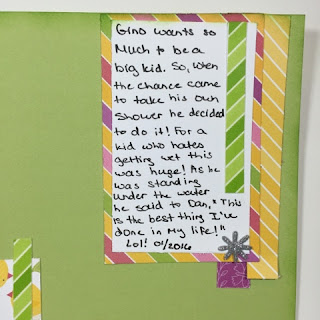 Gino wants so
Much to be a
big kid. So, when
the chance came
to take his own
Shower he decided
to do it! For a
kid who hates
getting wet this
was huge! As he
was standing
under the water
he said to Dan, "This
is the best thing I've
done in My life!"
Lol! 01/2016